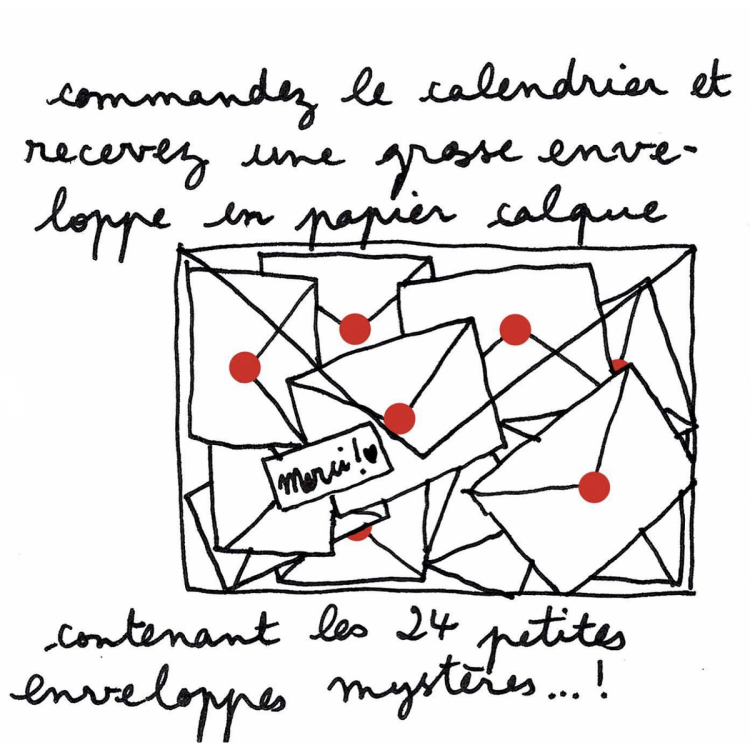 commandez le calendrier et
recevez une grosse enve-
loppe en papier calque
merci!♥
contenant les 24 petites
enveloppes mystères...!